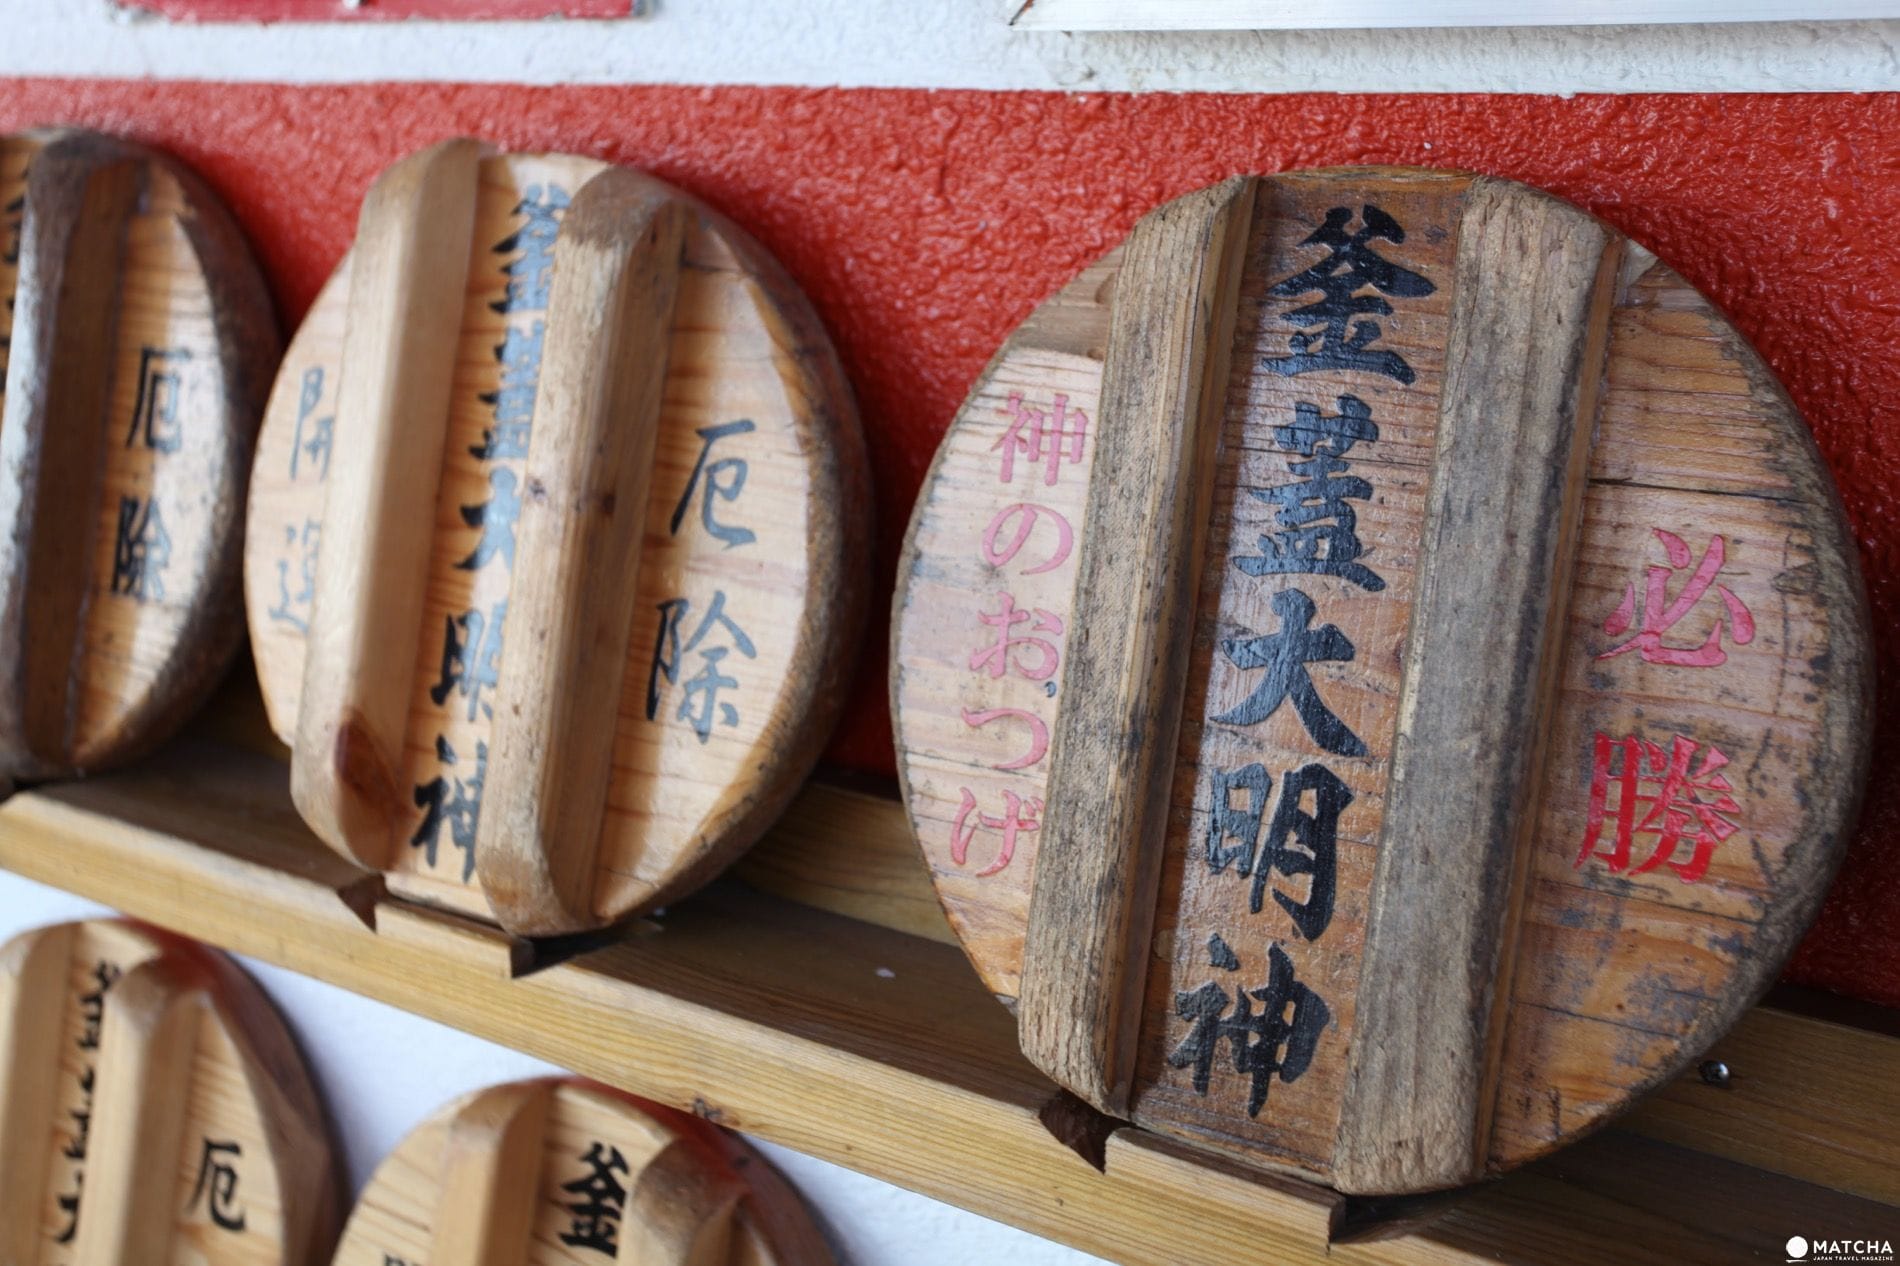 必勝
釜蓋大明神
神のおつげ
厄除
釜蓋大明神
開運
厄除
釜
厄
MATCHA
JAPAN TRAVEL MAGAZINE